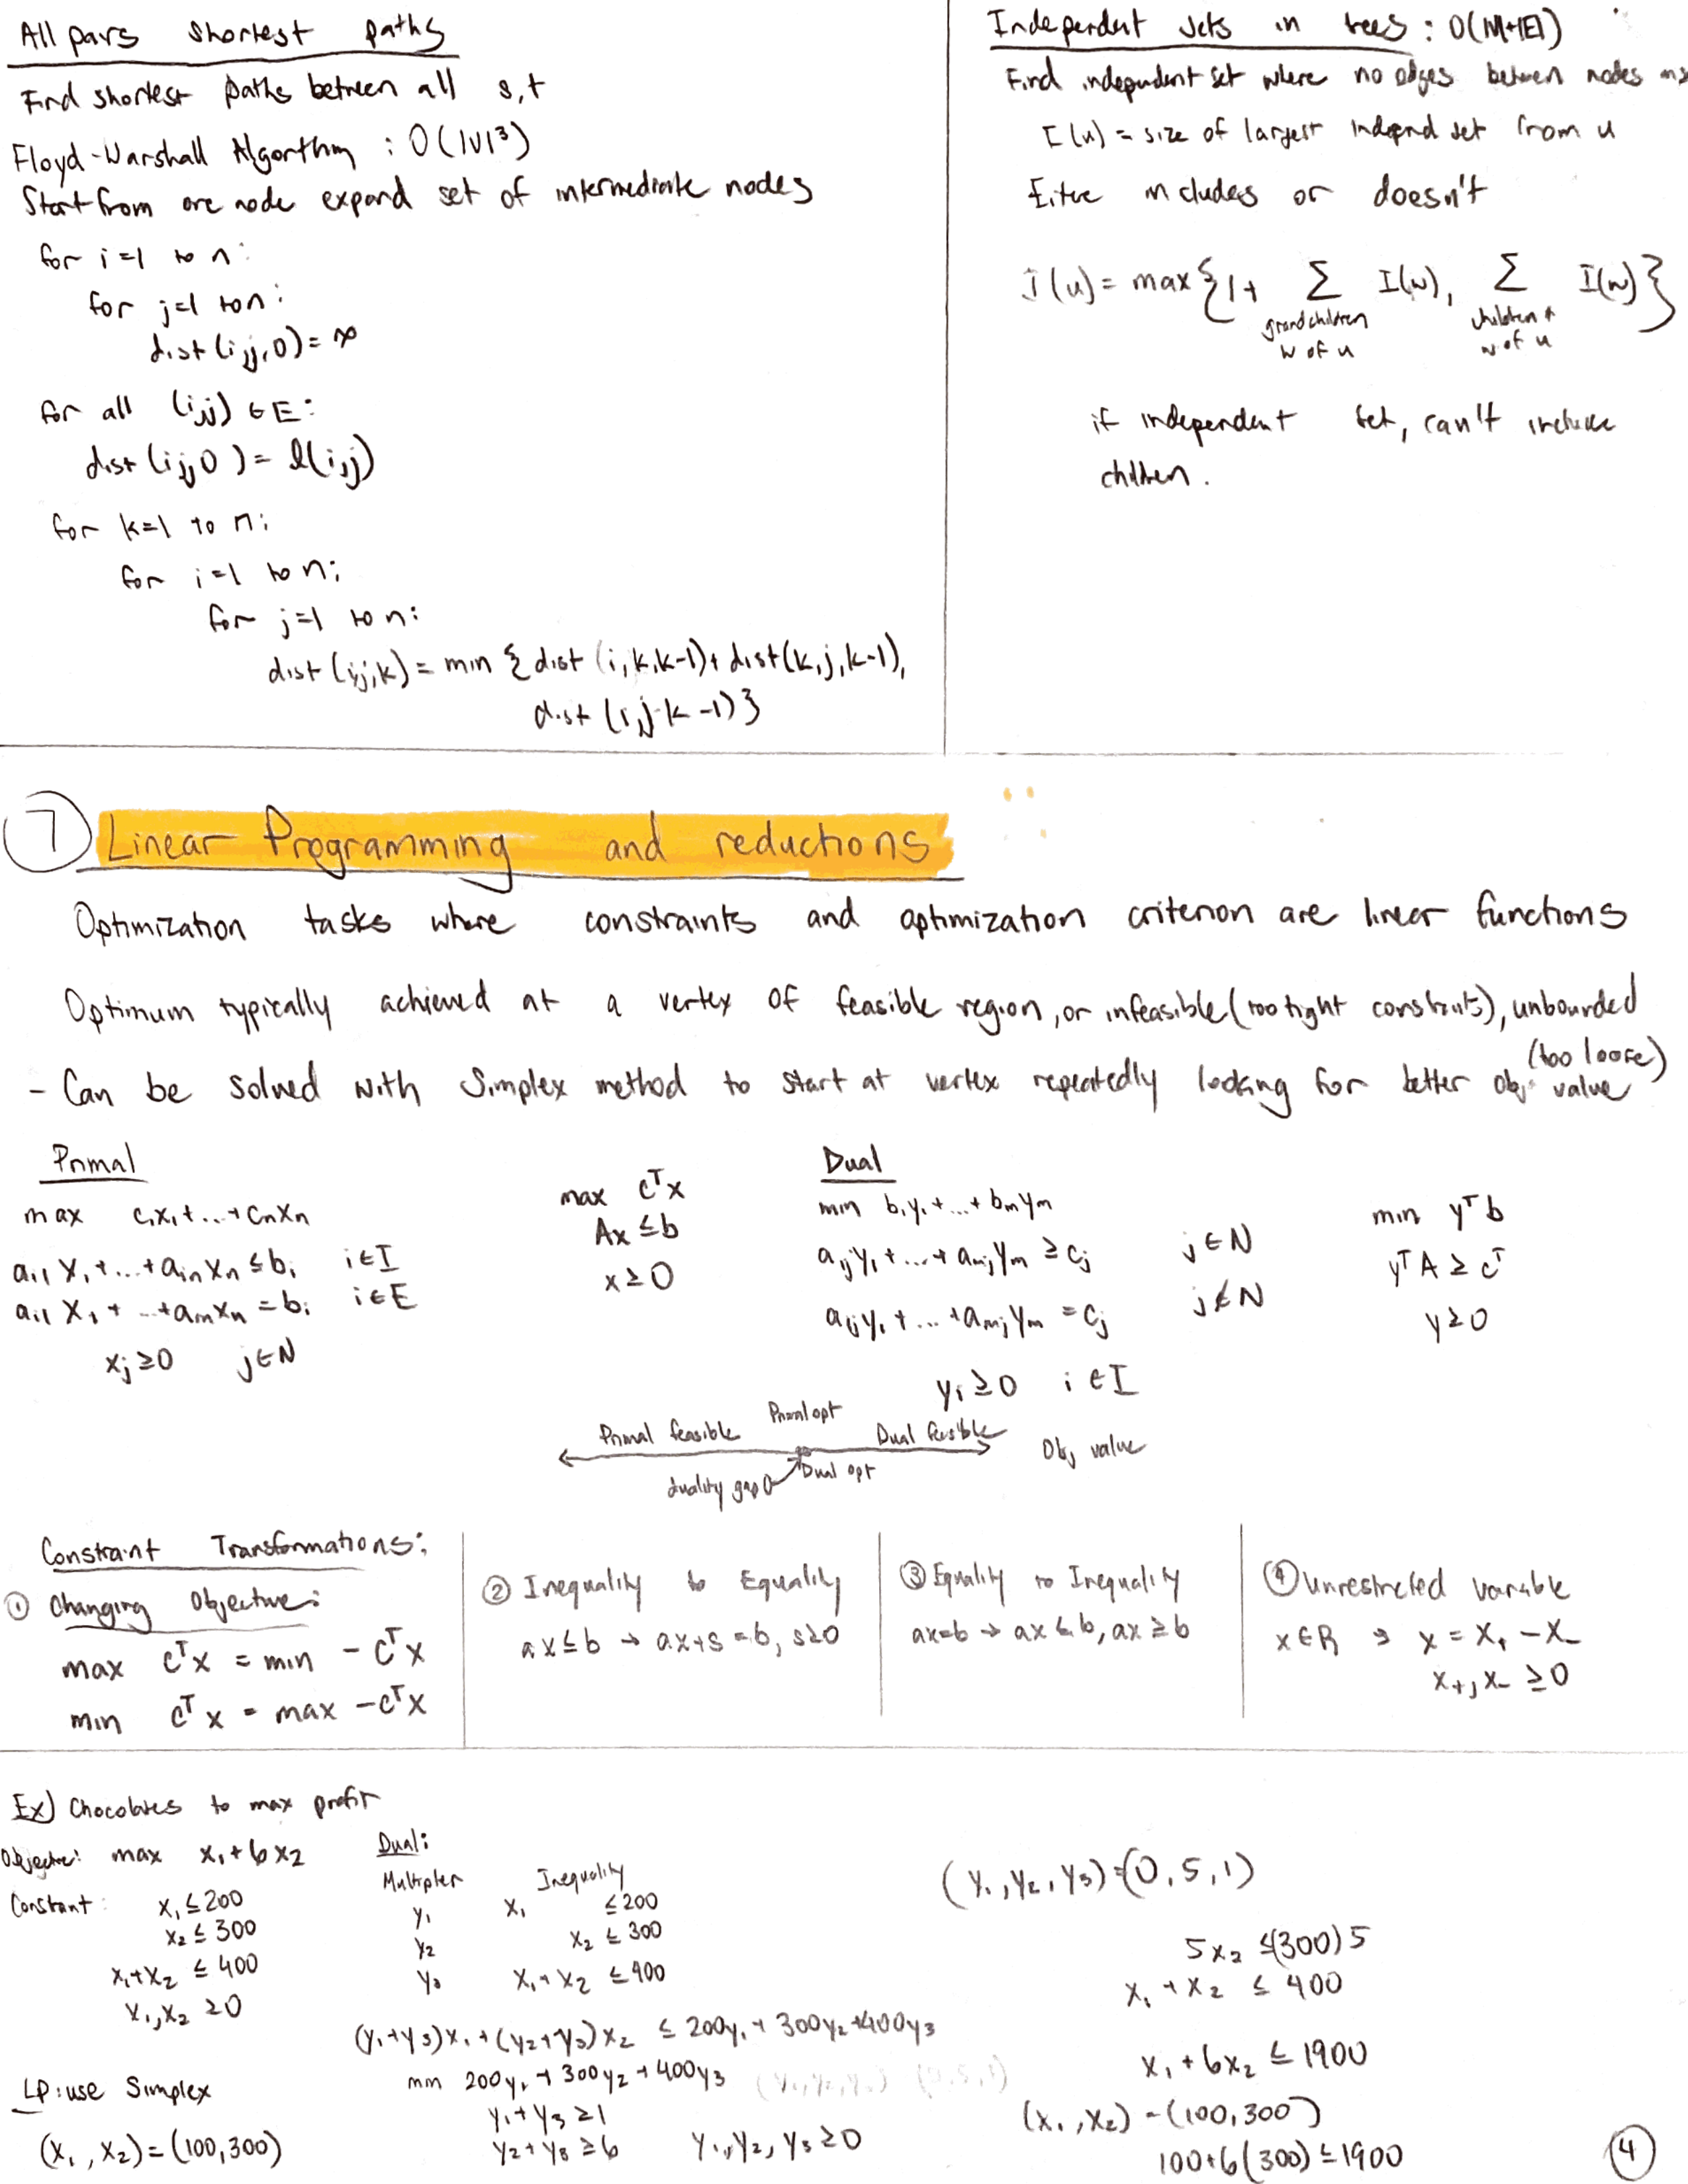 All pars shortest paths
Find shortest paths between all s,t
Floyd-Warshall Algorthm : O(|V|³)
Start from one node expand set of intermediate nodes
for i=1 to n:
for j=1 to n:
dist(i,j,0)=∞
for all (i,j) ∈ E:
dist(i,j,0)= l(i,j)
for k=1 to n:
for i=1 to n:
for j=1 to n:
dist(i,j,k)= min {dist(i,k,k-1)+dist(k,j,k-1),
dist(i,j,k-1)}
Independent sets in trees : O(|V|+|E|)
Find independent set where no edges between nodes
I(u) = size of largest independ set from u
includes or doesn't
I(u)= max{1+ Σ I(w), Σ I(w)}
grandchildren w of u
children w of u
if independent set, can't include
children.
7 Linear Programming and reductions
Optimization tasks where constraints and optimization criterion are linear functions
Optimum typically achieved at a vertex of feasible region, or infeasible (too tight constraints), unbounded
(too loose)
- Can be solved with Simplex method to start at vertex repeatedly looking for better obj value
Primal
max c₁x₁+...+cₙxₙ
aᵢ₁x₁+...+aᵢₙxₙ ≤ bᵢ i∈I
aᵢ₁x₁+...+aᵢₙxₙ = bᵢ i∈E
xⱼ≥0 j∈N
max cᵀx
Ax ≤ b
x≥0
Dual
min b₁y₁+...+bₘyₘ
a₁ⱼy₁+...+aₘⱼyₘ ≥ cⱼ j∈N
a₁ⱼy₁+...+aₘⱼyₘ = cⱼ j∉N
yᵢ≥0 i∈I
min yᵀb
yᵀA ≥ cᵀ
y≥0
Primal feasible Primal opt Dual feasible Obj value
duality gap 0 Dual opt
Constraint Transformations:
① Changing Objective:
max cᵀx = min -cᵀx
min cᵀx = max -cᵀx
② Inequality to Equality
ax≤b → ax+s=b, s≥0
③ Equality to Inequality
ax=b → ax≤b, ax≥b
④ Unrestricted variable
x∈R → x = x₊ - x₋
x₊, x₋ ≥0
Ex) Chocolates to max profit
Objective: max x₁+6x₂
Constant: x₁≤200
x₂≤300
x₁+x₂ ≤ 400
x₁,x₂ ≥0
LP: use Simplex
(x₁,x₂)=(100,300)
Dual:
Multipler Inequality
y₁ x₁ ≤200
y₂ x₂ ≤ 300
y₃ x₁+x₂ ≤400
(y₁+y₃)x₁+(y₂+y₃)x₂ ≤ 200y₁+300y₂+400y₃
min 200y₁+300y₂+400y₃
y₁+y₃≥1
y₂+y₃≥6 y₁,y₂,y₃≥0
(y₁,y₂,y₃)=(0,5,1)
5x₂ ≤(300)5
x₁+x₂ ≤ 400
x₁+6x₂ ≤ 1900
(x₁,x₂)=(100,300)
100+6(300)≤1900
4